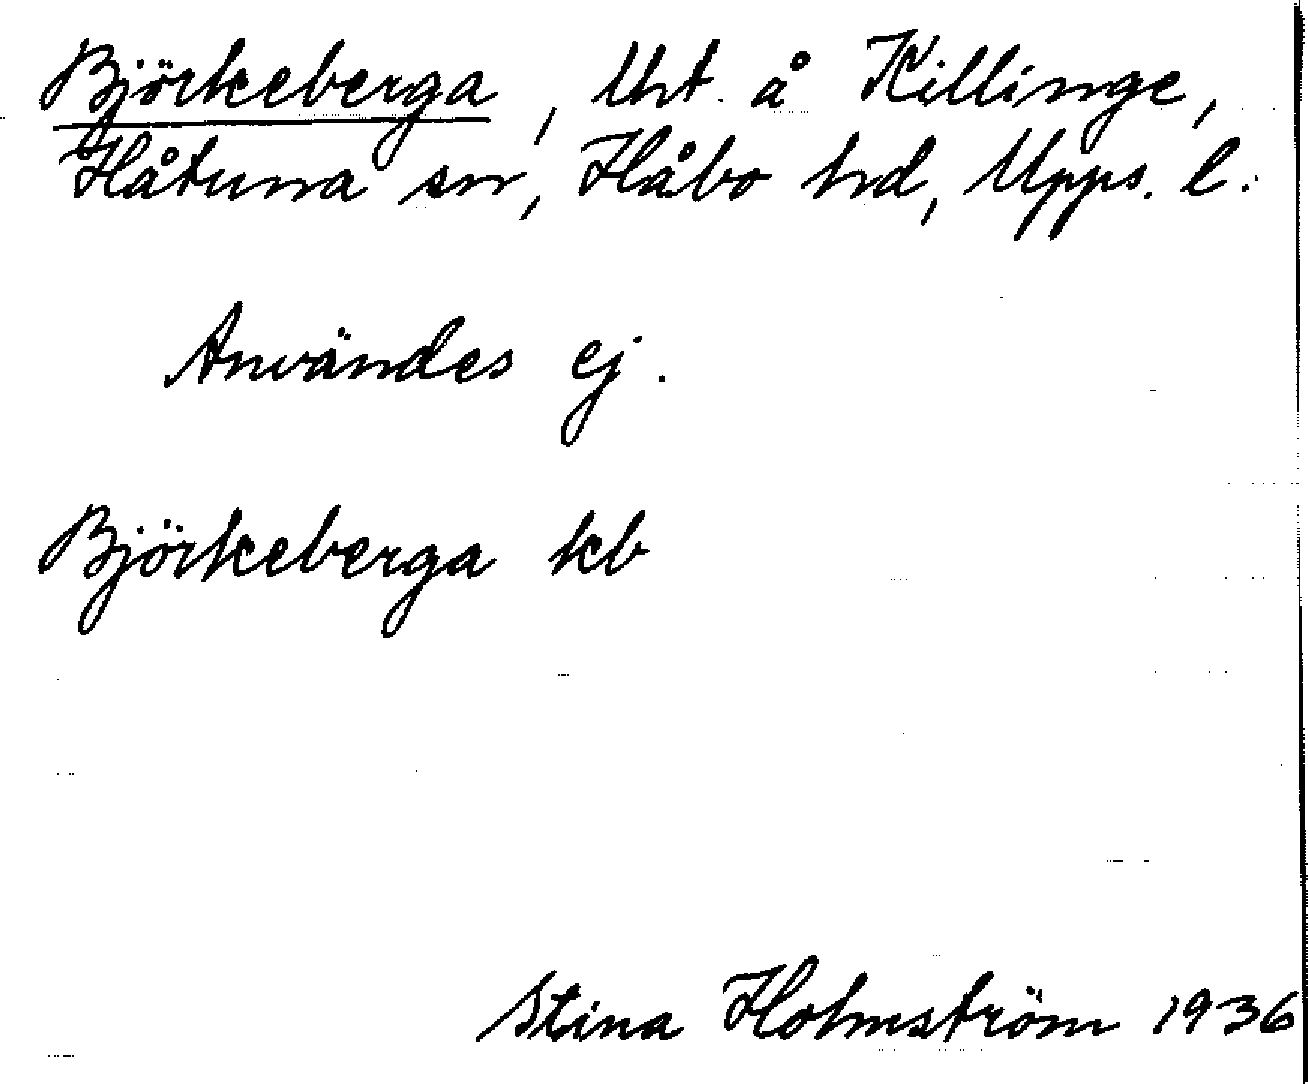 Björkeberga, Uht. å Killinge,
Håtuna sn, Håbo hd, Upps. l.
Användes ej.
Björkeberga kb
Stina Holmström 1936